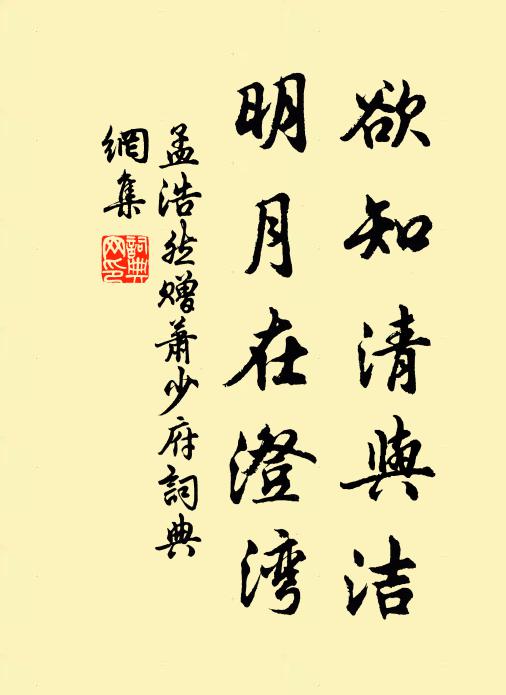 欲知清與洁
明月在澄湾
孟浩然赠萧少府詞典
網集
詞典
网印